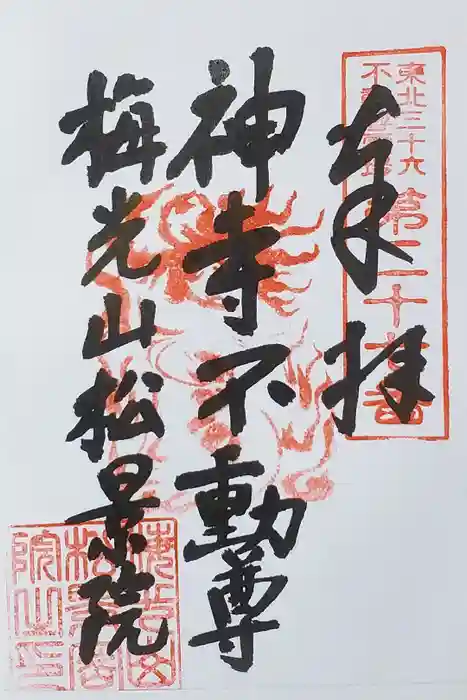 奉拝
東北三十六
不
第二十
番
神寺不動尊
梅光山松景院
梅光山
松景
院之印